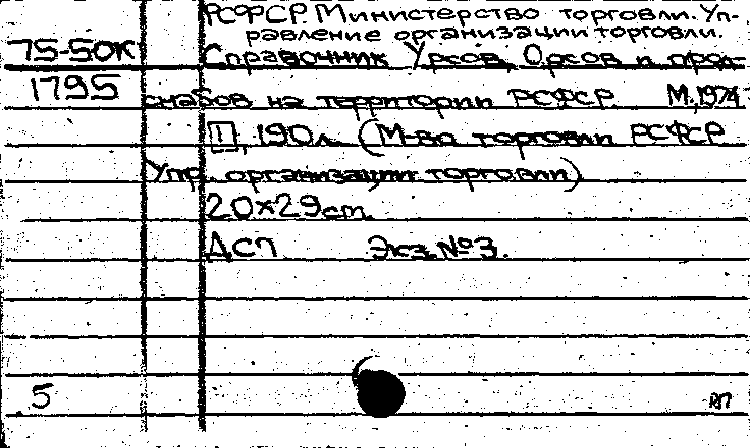 РСФСР. Министерство торговли. Уп-
равление организации торговли.
75-50к
Справочник Урсов, Орсов и прод-
1795
снабов на территории РСФСР М., 1974
[1], 190л. (М-во торговли РСФСР
Упр. организации торговли)
20×29 cm.
ДСП Экз. №3.
5